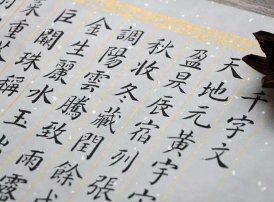 千字文
天地元黃宇
盈昃辰宿列張
秋收冬藏閏餘
調陽雲騰致雨露
金生麗水玉出
巨關珠稱
重